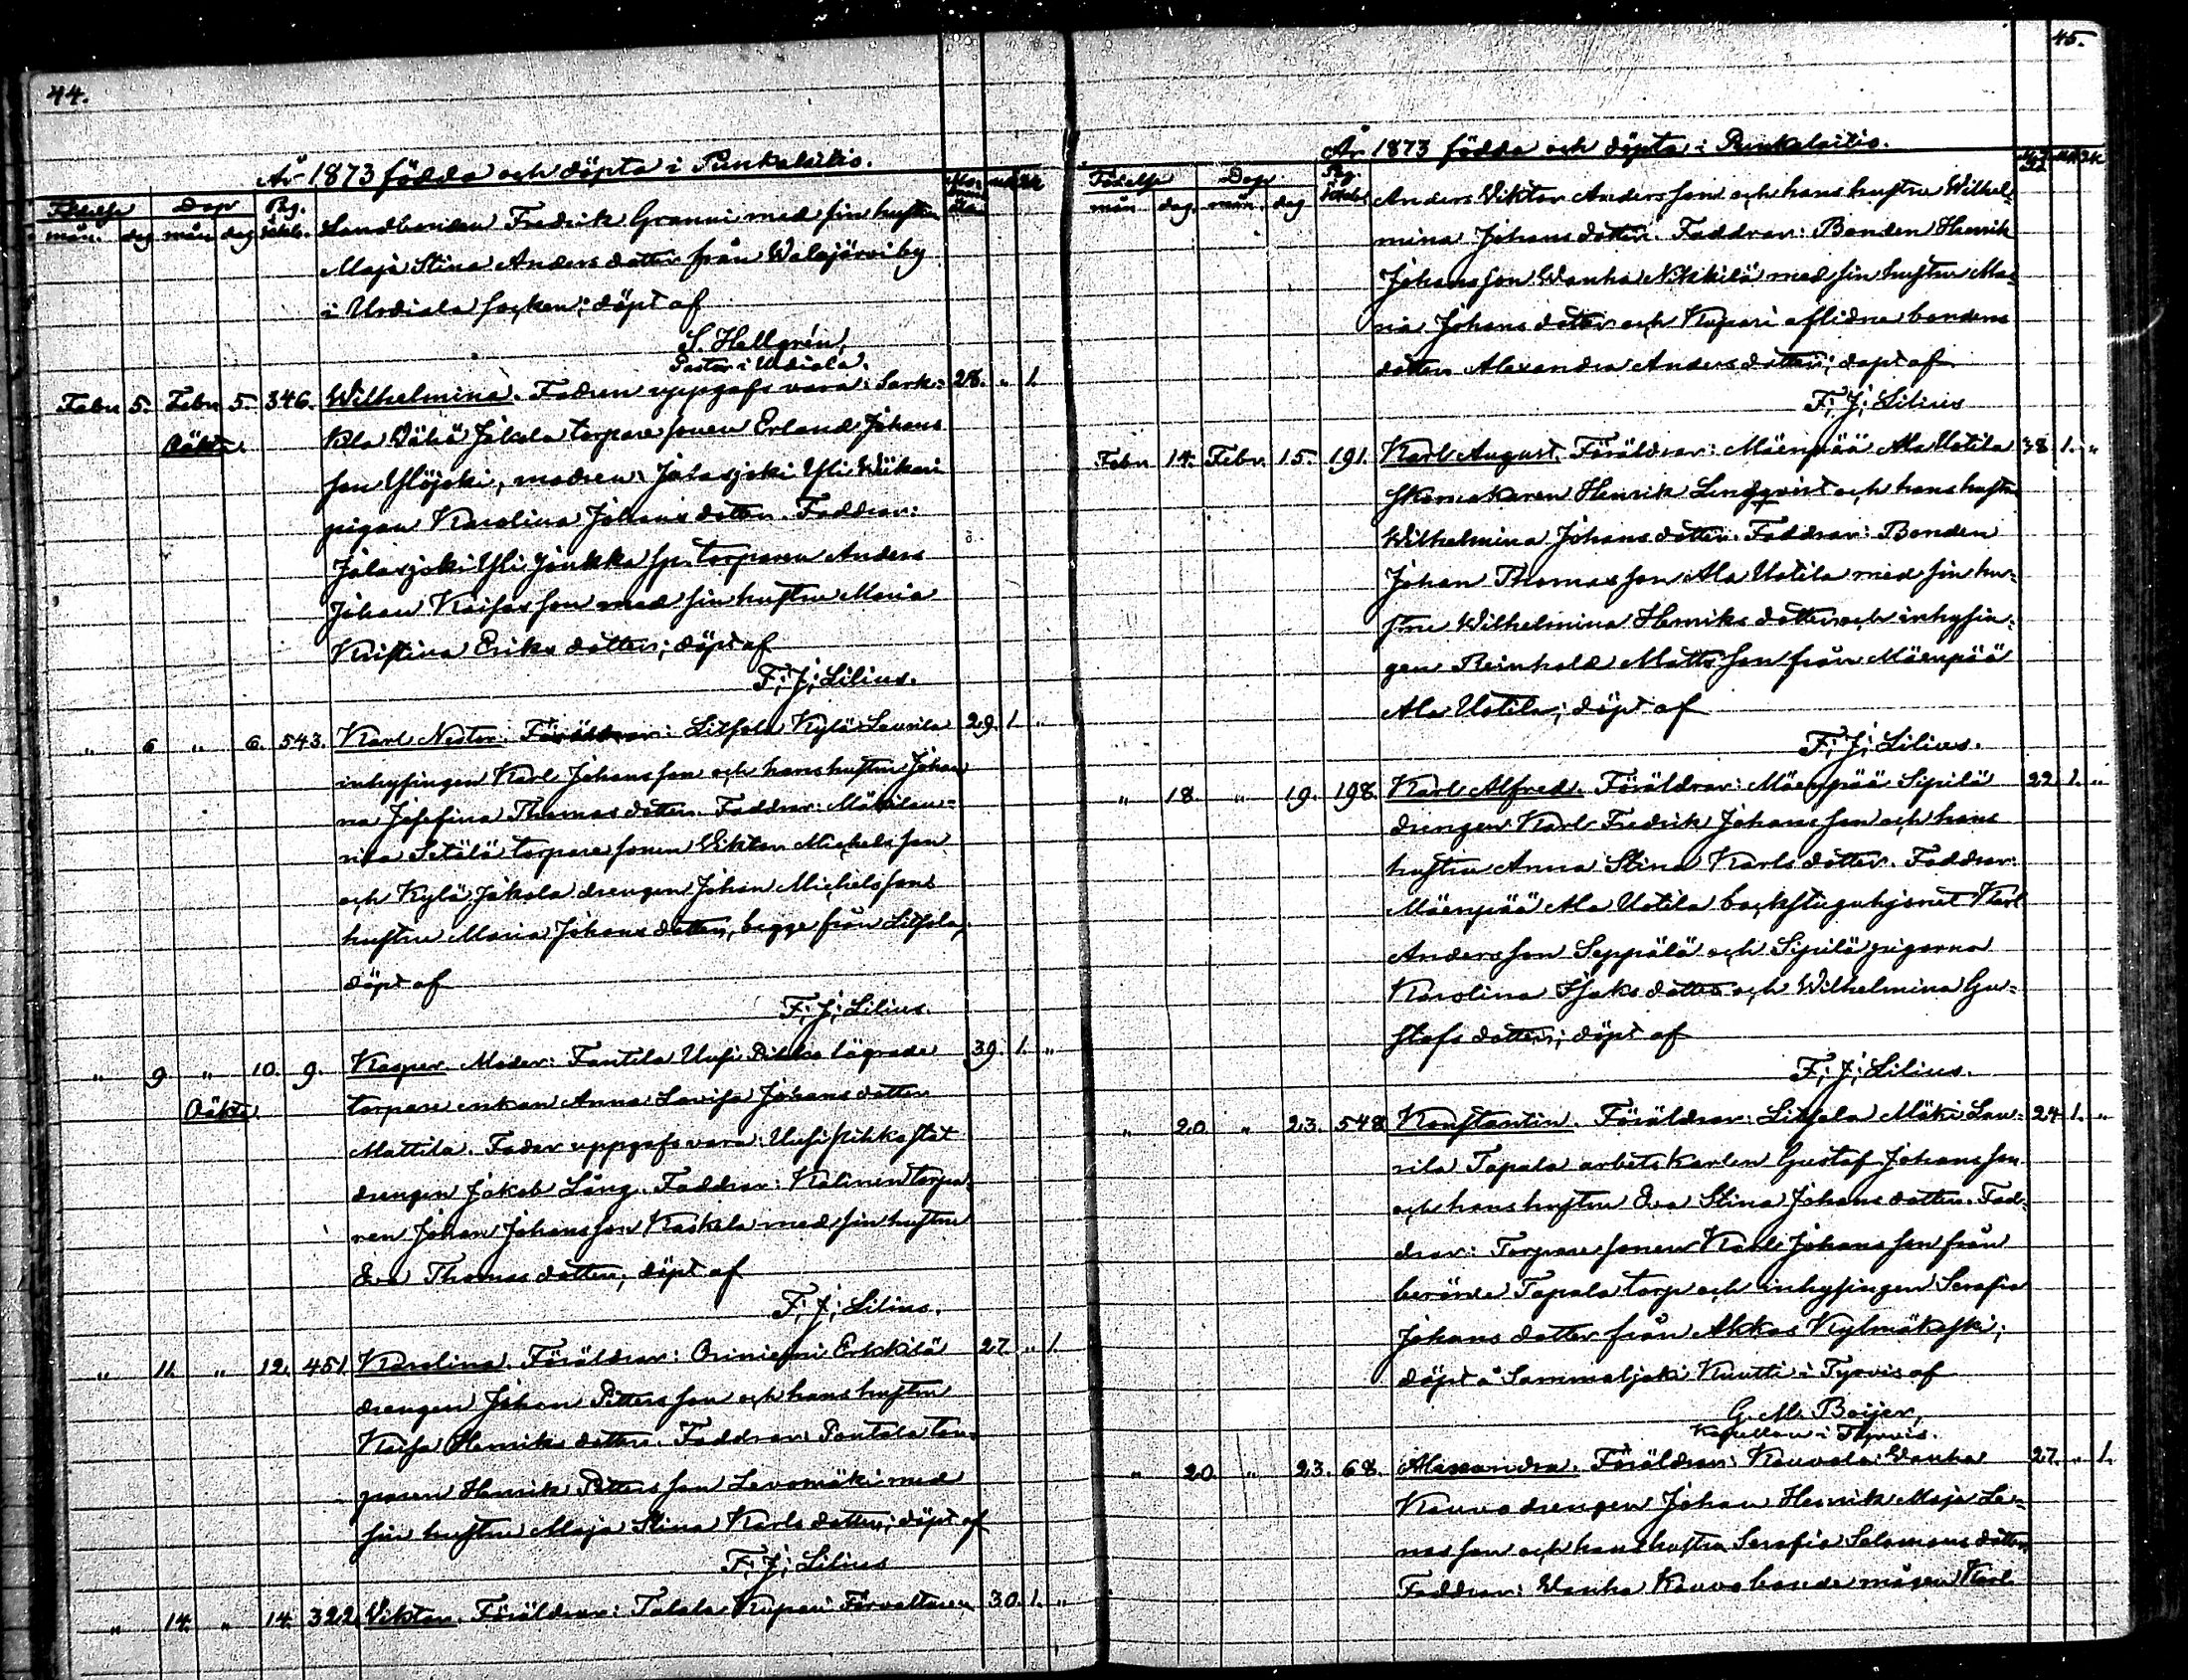 44.
År 1873 födda och döpta i Punkalaitio.
Födelse Dop Pag. Mo- mk qk
mån. dag mån dag
Landbonden Fredrik Granni med sin hustru
Maja Stina Anders dotter från Walajärvi by
i Urdiala socken; döpt af
S. Hellgrén,
Pastor i Urdiala.
Febr 5. Febr 5. 346. Wilhelmina. Fadren uppgafs vara: Sark- 28. " 1.
Oäkta. kila Vähä Jakala torpare sonen Erland Johans
son Ylöjoki, modren: Jalasjoki Yli Wiikari
pigan Karolina Johansdotter. Faddrar:
Jalasjoki Yli Jaukka sp. torparen Anders
Johan Kaisasson med sin hustru Maria
Kristina Eriks dotter; döpt af
F. J. Lilius.
" 6 " 6. 543. Karl Nestor. Föräldrar: Liitsola Kylä Laurila 29. 1. "
inhysingen Karl Johansson och hans hustru Johan
na Josefina Thomas dotter. Faddrar: Mäkilau-
rila Setälä torpare sonen Viktor Michelsson
och Kylä Jakola drengen Johan Michelssons
hustru Maria Johans dotter, begge från Liitsola;
döpt af
F. J. Lilius.
" 9 " 10. 9. Kasper. Moder: Fantila Uusi Pikka lägrade 39. 1. "
Oäkta torpare enkan Anna Lovisa Johans dotter
Mattila. Fader uppgafs vara: Uusipikkastat
drengen Jakob Lång. Faddrar: Kalinen torpa-
ren Johan Johansson Kaskela med sin hustru
Eva Thomas dotter; döpt af
F. J. Lilius.
" 11. " 12. 451 Karolina. Föräldrar: Oriniemi Erkkilä 27 " 1.
drengen Johan Pettersson och hans hustru
Kaisa Henriks dotter. Faddrar: Pantala tor-
paren Henrik Petters son Levomäki med
sin hustru Maja Stina Karls dotter; döpt af
F. J. Lilius
" 14. " 14. 322. Viktor. Föräldrar: Talala Kupari Förvaltaren 30. 1. "
45.
År 1873 födda och döpta i Punkalaitio.
Födelse Dop Pag.
mån dag. mån. dag
Anders Viktor Andersson och hans hustru Wilhel-
mina Johans dotter. Faddrar: Bonden Henrik
Johansson Wanha Nikkilä med sin hustru Ma-
ria Johans dotter och Kupari aflidne bondens
dotter Alexandra Anders dotter; döpt af
F. J. Lilius
Febr 14. Febr. 15. 191. Karl August. Föräldrar: Mäenpää Ala Uotila 38 1. "
skomakaren Henrik Lindqvist och hans hustru
Wilhelmina Johans dotter. Faddrar: Bonden
Johan Thomasson Ala Uotila med sin hu-
stru Wilhelmina Henriks dotter och inhysin-
gen Reinhold Mattsson från Mäenpää
Ala Uotila; döpt af
F. J. Lilius.
" 18. " 19. 198. Karl Alfred. Föräldrar: Mäenpää Sipilä 22 1. "
drengen Karl Fredrik Johansson och hans
hustru Anna Stina Karls dotter. Faddrar:
Mäenpää Ala Uotila backstuguhjonet Karl
Andersson Seppälä och Sipilä pigorna
Karolina Isaks dotter och Wilhelmina Gu-
stafs dotter; döpt af
F. J. Lilius.
" 20. " 23. 548 Konstantin. Föräldrar: Liitsola Mäki Lau- 24 1. "
rila Tapala arbetskarlen Gustaf Johansson
och hans hustru Eva Stina Johans dotter. Fad-
drar: Torpare sonen Karl Johansson från
berörde Tapala torp och inhysingen Serafia
Johans dotter från Akkas Kylmäkoski;
döpt å Sammaljoki Knutti i Tyrvis af
G. M. Boijer,
Kapellan i Tyrvis.
" 20. " 23. 68. Alexandra. Föräldrar: Kouvola Wanha 27. " 1.
Kouvo drengen Johan Henrik Maja Le-
nas son och hans hustru Serafia Salomons dotter
Faddrar: Wanha Kouvo bonde mågen Karl